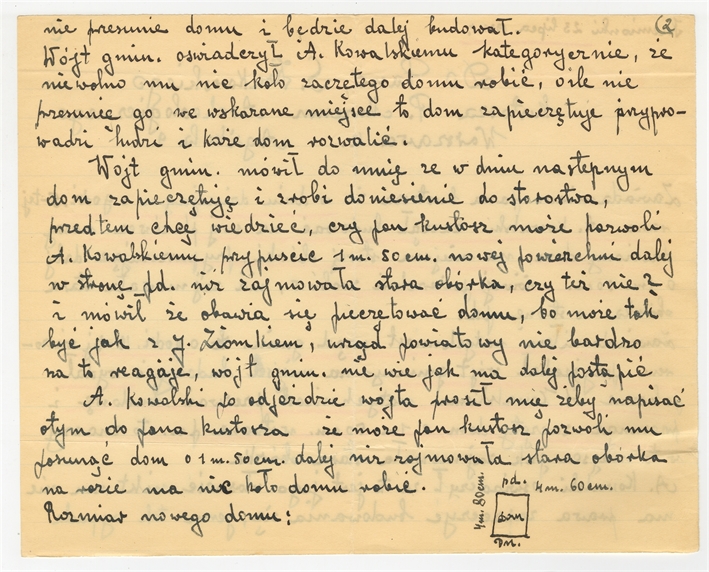 nie przesunie domu i będzie dalej budował. (2
Wójt gmin. oswiadczył A. Kowalskiemu kategorycznie, ze
niewolno mu nic koło zaczętego domu robić, o ile nie
przesunie go we wskazane miejsce to dom zapieczętuje przypro-
wadzi ludzi i każe dom rozwalić.
Wójt gmin. mówił do mnię ze w dniu nastepnym
dom zapieczętuję i zrobi doniesienie do starostwa,
przedtem chcę wiedzieć, czy pan kustosz może pozwoli
A. Kowalskiemu przypuscic 1 m. 50 cm. nowej powierzchni dalej
w stronę pd. niz zajmowała stara obórka, czy też nie?
i mówił że obawia się pieczętować domu, bo może tak
być jak z J. Ziomkiem, urząd powiatowy nie bardzo
na to reagaje, wójt gmin. nie wie jak ma dalej postąpić
A. Kowalski po odjeździe wójta prosił mię żeby napisać
o tym do pana kustosza że moze pan kustosz pozwoli mu
posunąć dom o 1 m. 50 cm. dalej niz zajmowała stara obórka
na razie ma nic koło domu robić.
Rozmiar nowego domu:
pd. 4 m. 60 cm.
4 m. 80 cm.
dom
pn.